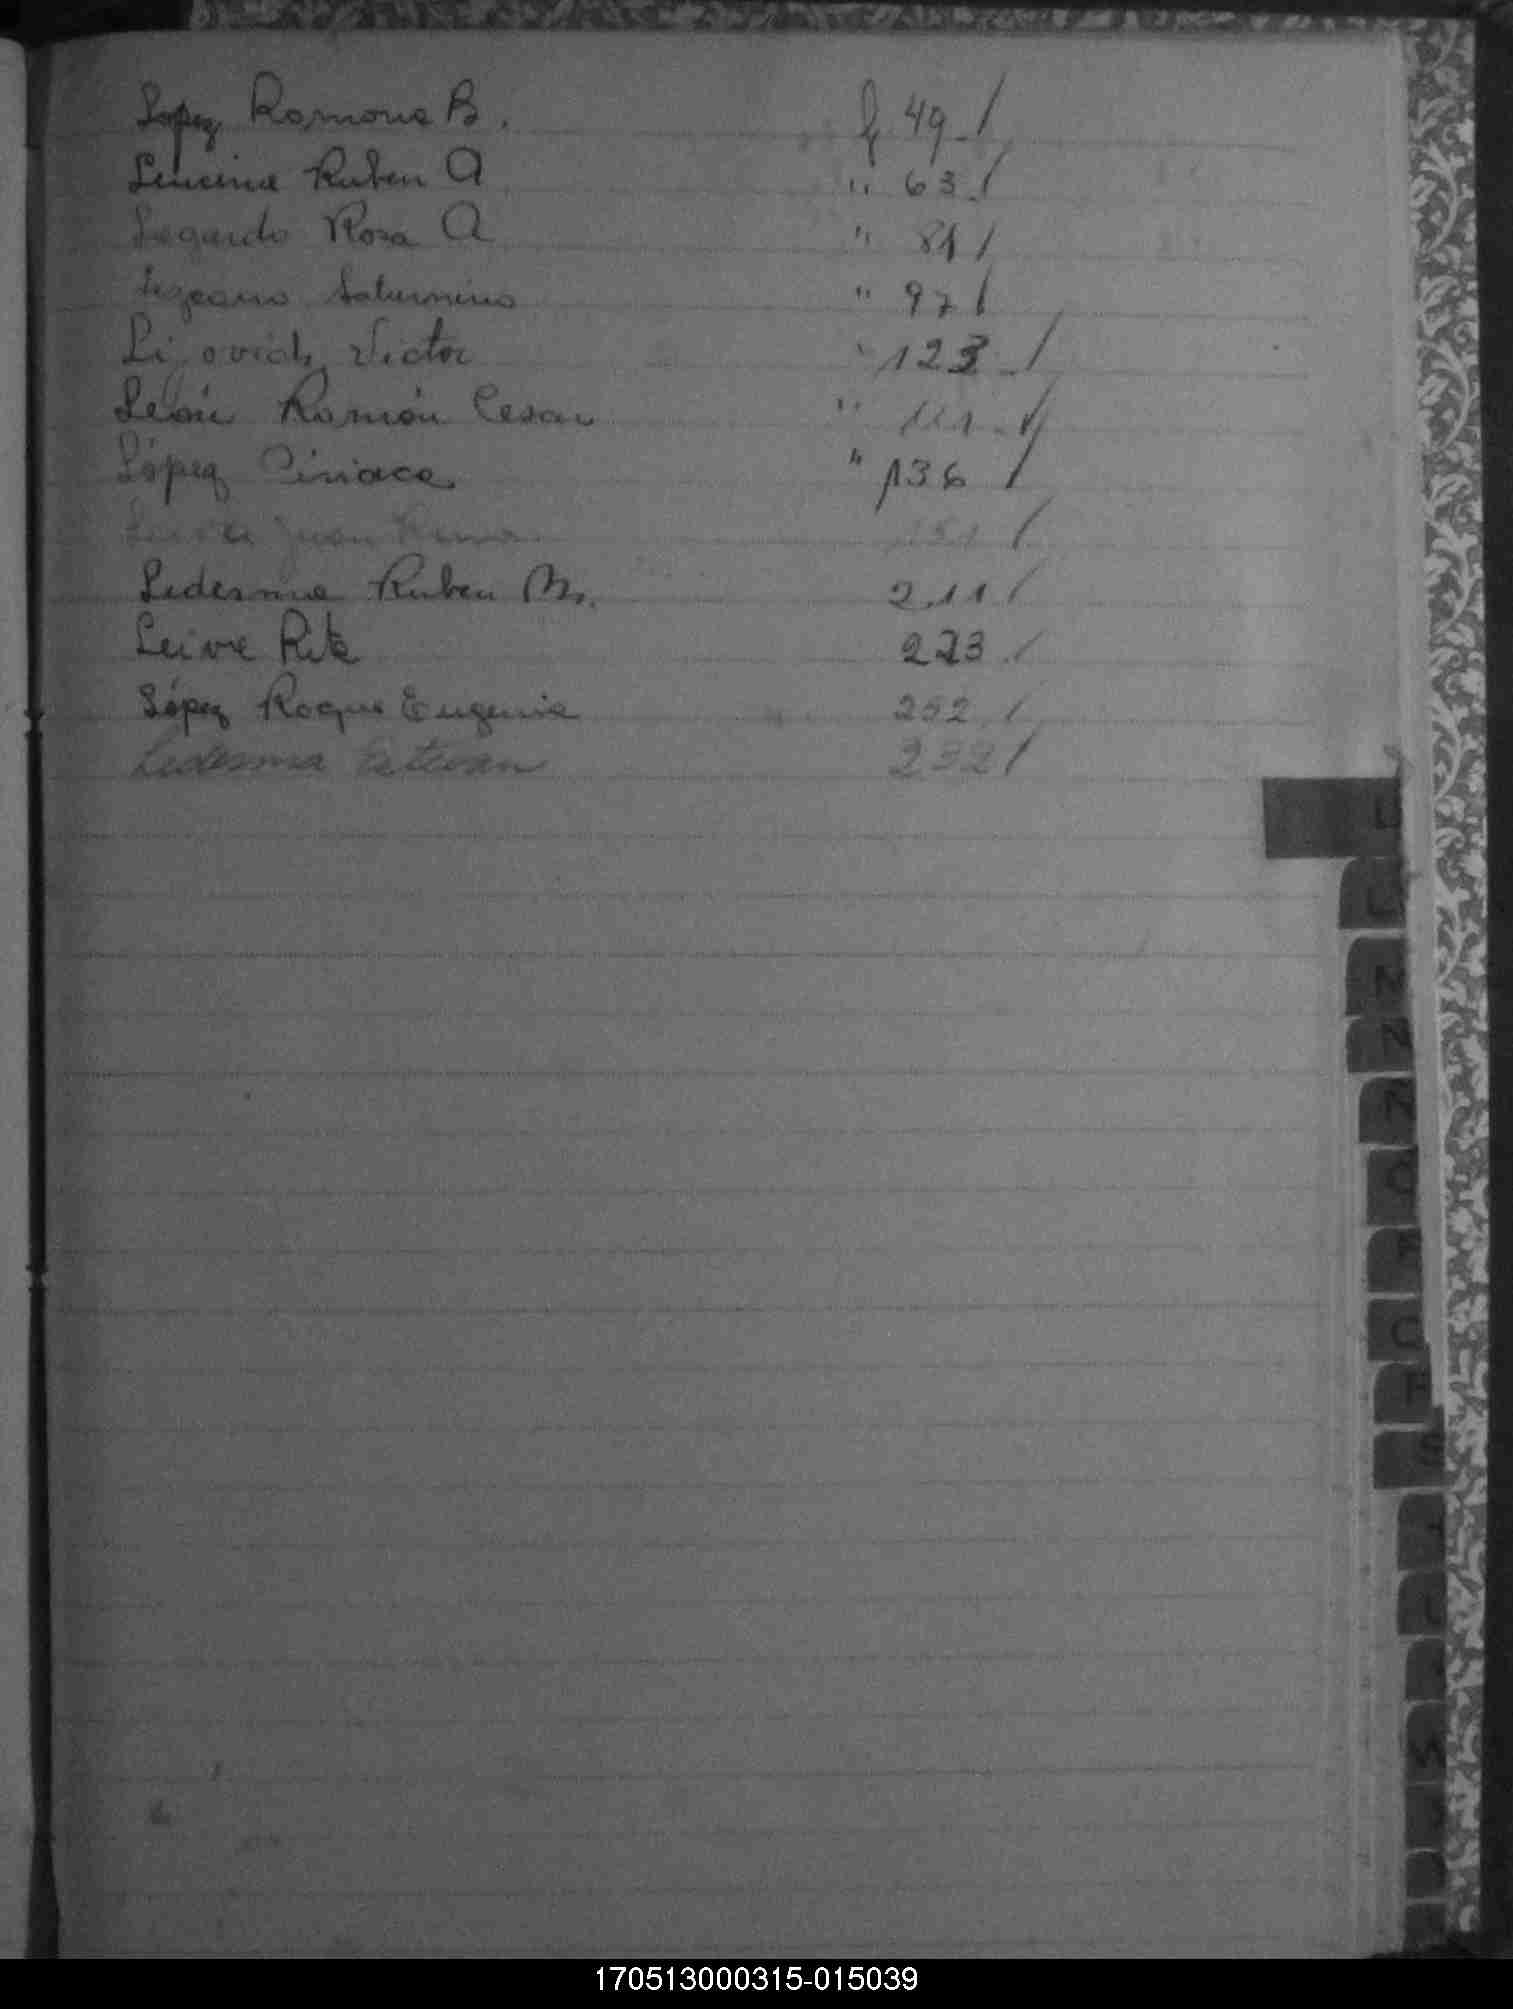 Lopez Ramona B. f 49 /
Lencina Ruben A " 63 /
Legardo Rosa A " 81 /
Lezcano Saturnino " 97 /
Lijovich Victor " 123 /
León Ramón Cesar " 111 /
López Ciriaca " 136 /
Juan 151 /
Ledesma Ruben M. 211 /
Leiva Rita 223 /
López Roque Eugenia 252 /
Ledesma Estevan 292 /
L
L
M
N
Ñ
O
P
Q
R
S
170513000315-015039